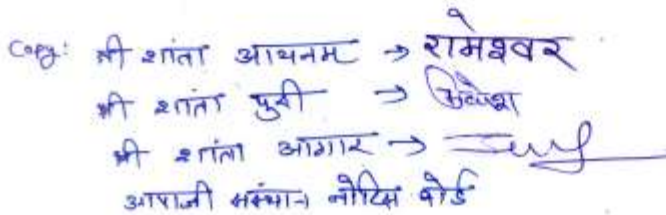 Copy: श्री शांता आथनम → रामेश्वर
श्री शांता पुरी →
श्री शांता आगार →
आपाजी संस्थान नोटिस बोर्ड